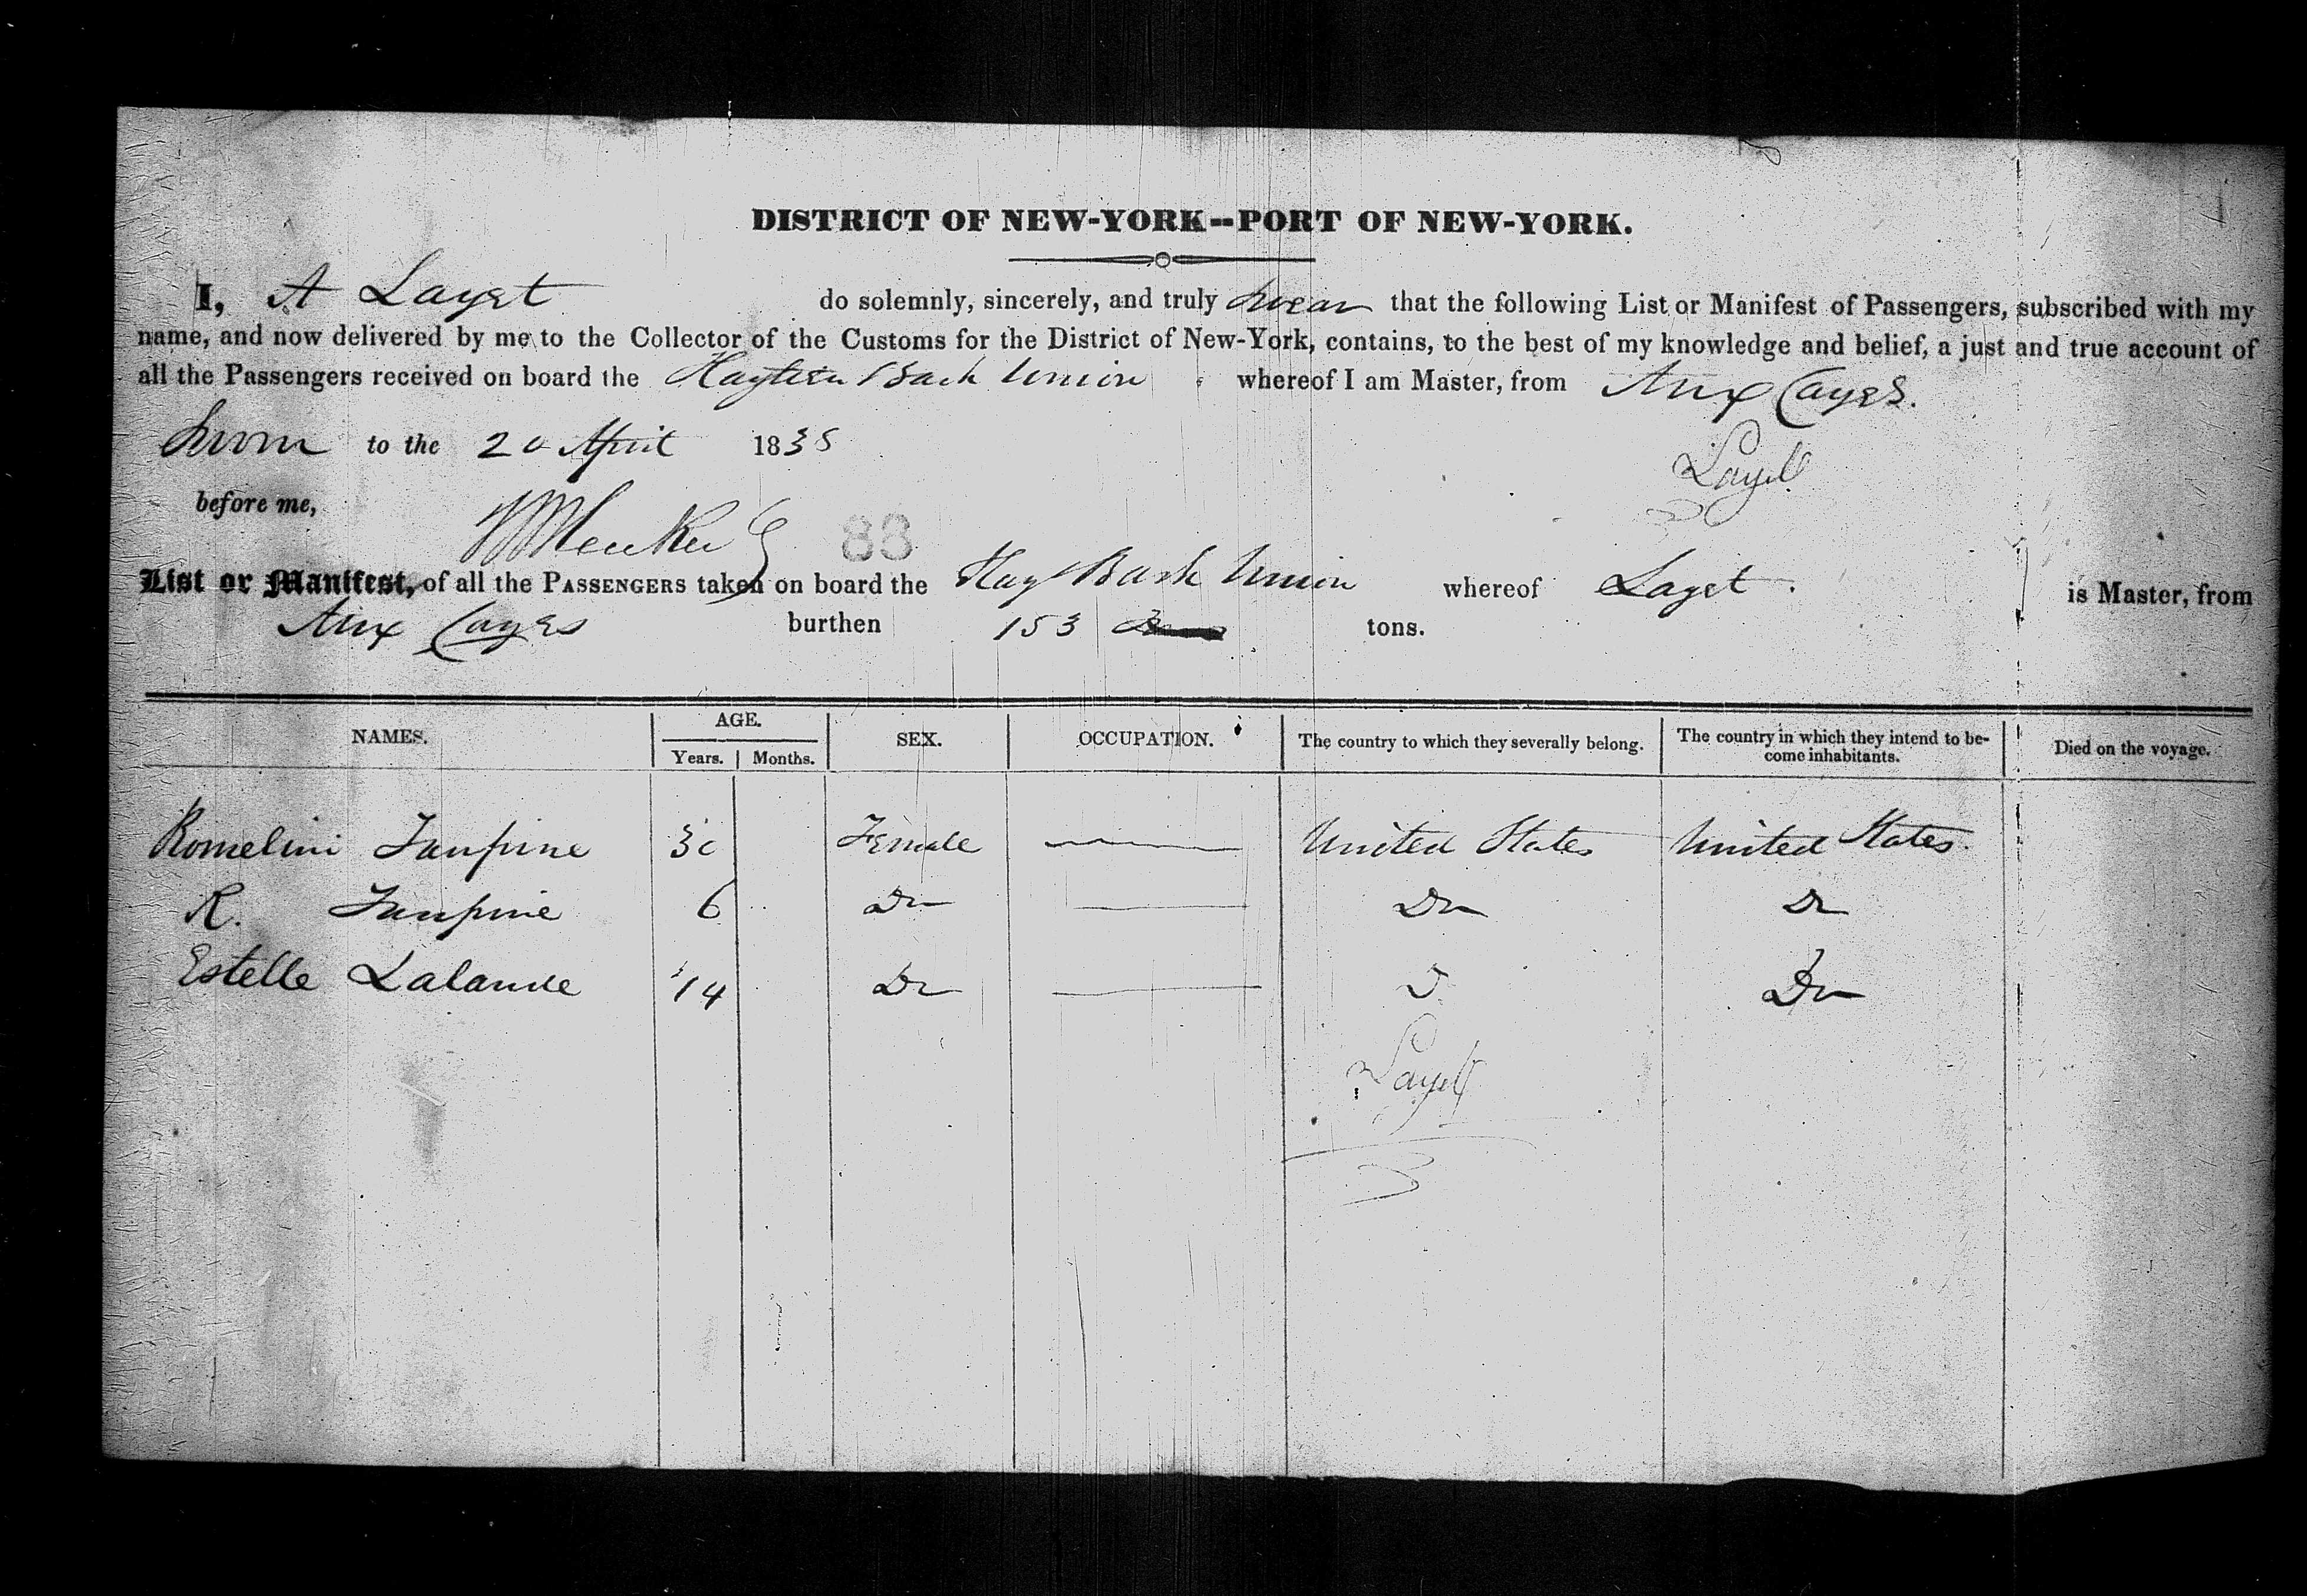 DISTRICT OF NEW-YORK--PORT OF NEW-YORK.
I, A Layet do solemnly, sincerely, and truly swear that the following List or Manifest of Passengers, subscribed with my
name, and now delivered by me to the Collector of the Customs for the District of New-York, contains, to the best of my knowledge and belief, a just and true account of
all the Passengers received on board the Haytien Bark Union whereof I am Master, from Aux Cayes.
Sworn to the 20 April 1835
Layet
before me,
88
List or Manifest, of all the PASSENGERS taken on board the Hay Bark Union whereof Layet. is Master, from
Aux Cayes burthen 153 tons.
NAMES. AGE. SEX. OCCUPATION. The country to which they severally belong. The country in which they intend to be-come inhabitants. Died on the voyage.
Years. Months.
Romelini 30 Female United States United States.
R. 6 Do Do Do
Estelle Lalande 14 Do D Do
Layet